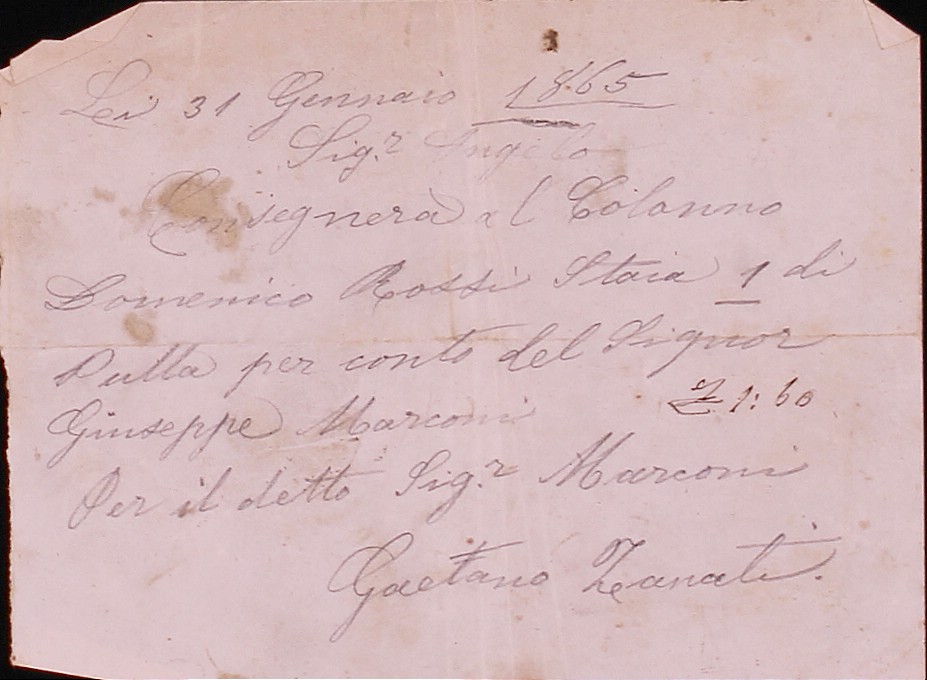 Lei 31 Gennaio 1865
Sig.r Angelo
Consegnera al Colonno
Domenico Rossi Staia 1 di
Pulla per conto del Signor
Giuseppe Marconi £ 1:60
Per il detto Sig.r Marconi
Gaetano Zanati.